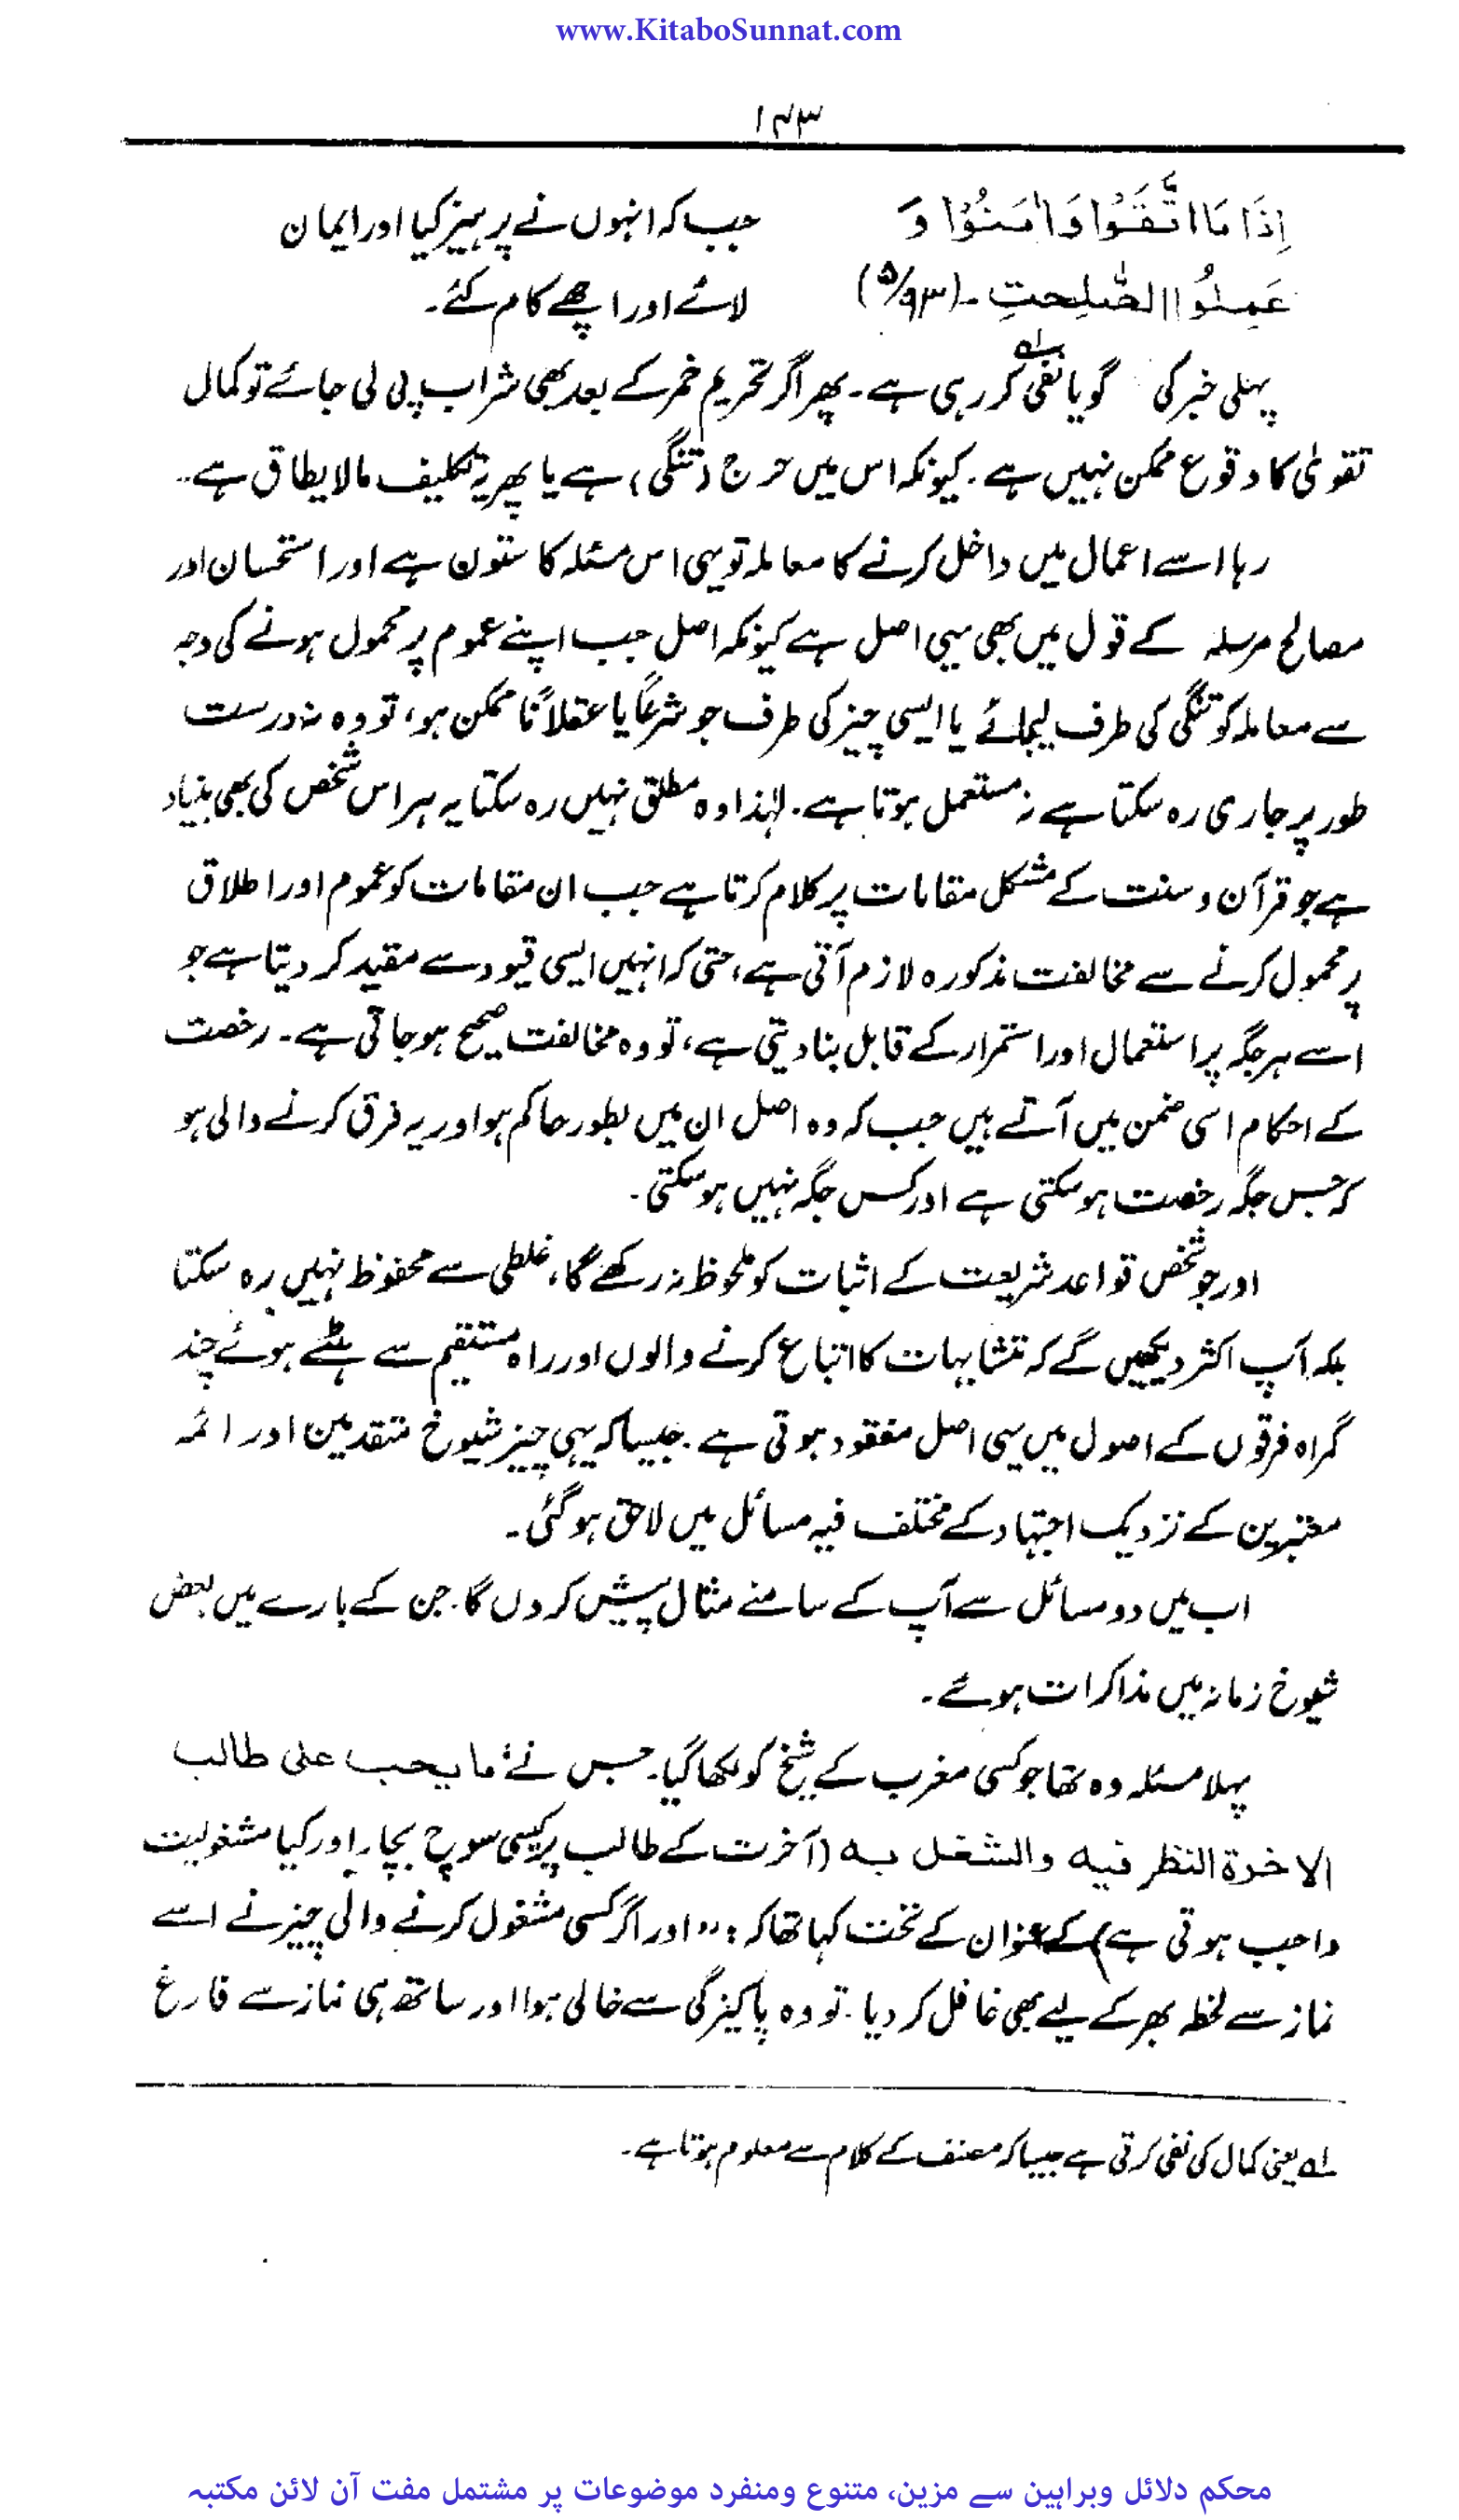 www.KitaboSunnat.com
۱۷۳
اِذَا مَا اتَّقَوْا وَاٰمَنُوْا وَ جب کہ انہوں نے پرہیز کیا اور ایمان
عَمِلُوا الصّٰلِحٰتِ - (۵/۹۳) لائے اور اچھے کام کئے۔
پہلی خبر کی گویا نفی۱؎ کر رہی ہے۔ پھر اگر تحریم خمر کے بعد بھی شراب پی لی جائے تو کمال
تقویٰ کا وقوع ممکن نہیں ہے۔ کیونکہ اس میں حرج (تنگی) ہے یا پھر یہ تکلیف مالا یطاق ہے۔
رہا اسے اعمال میں داخل کرنے کا معاملہ تو یہی اس مسئلہ کا ستون ہے اور استحسان اور
مصالح مرسلہ کے قول میں بھی یہی اصل ہے کیونکہ اصل جب اپنے عموم پر محمول ہونے کی وجہ
سے معاملہ کو تنگی کی طرف لیجائے یا ایسی چیز کی طرف جو شرعاً یا عقلاً نا ممکن ہو، تو وہ نہ درست
طور پر جاری رہ سکتا ہے نہ مستعمل ہوتا ہے۔ لہٰذا وہ مطلق نہیں رہ سکتا یہ ہر اس شخص کی بھی بنیاد
ہے جو قرآن و سنت کے مشکل مقامات پر کلام کرتا ہے جب ان مقامات کو عموم اور اطلاق
پر محمول کرنے سے مخالفت مذکورہ لازم آتی ہے، حتی کہ انہیں ایسی قیود سے مقید کر دیتا ہے جو
اسے ہر جگہ پر استعمال اور استمرار کے قابل بنا دیتی ہے، تو وہ مخالفت صحیح ہو جاتی ہے۔ رخصت
کے احکام اسی ضمن میں آتے ہیں جب کہ وہ اصل ان میں بطور حاکم ہو اور یہ فرق کرنے والی ہو
کہ جس جگہ رخصت ہو سکتی ہے اور کس جگہ نہیں ہو سکتی۔
اور جو شخص قواعد شریعت کے اثبات کو ملحوظ نہ رکھے گا، غلطی سے محفوظ نہیں رہ سکتا
بلکہ آپ اکثر دیکھیں گے کہ متشابہات کا اتباع کرنے والوں اور راہ مستقیم سے ہٹے ہوئے چند
گمراہ فرقوں کے اصول میں یہی اصل مفقود ہوتی ہے۔ جیسا کہ یہی چیز شیوخ متقدمین اور ائمہ
معتبرین کے نزدیک اجتہاد کے مختلف فیہ مسائل میں لاحق ہو گئی۔
اب میں دو مسائل سے آپ کے سامنے مثال پیش کر دوں گا۔ جن کے بارے میں بعض
شیوخ زمانہ میں مذاکرات ہوئے۔
پہلا مسئلہ وہ تھا جو کسی مغرب کے شیخ کو لکھا گیا۔ جس نے "ما یجب علی طالب
الاخرۃ النظر فیہ والشغل بہ (آخرت کے طالب پر کیسی سوچ بچار اور کیا مشغولیت
واجب ہوتی ہے) کے عنوان کے تحت کہا تھا کہ: "اور اگر کسی مشغول کرنے والی چیز نے اسے
نماز سے لحظہ بھر کے لیے بھی غافل کر دیا۔ تو وہ پاکیزگی سے خالی ہوا اور ساتھ ہی نماز سے فارغ
۱؎ یعنی کمال کی نفی کرتی ہے جیسا کہ مصنف کے کلام سے معلوم ہوتا ہے۔
محکم دلائل وبراہین سے مزین، متنوع ومنفرد موضوعات پر مشتمل مفت آن لائن مکتبہ